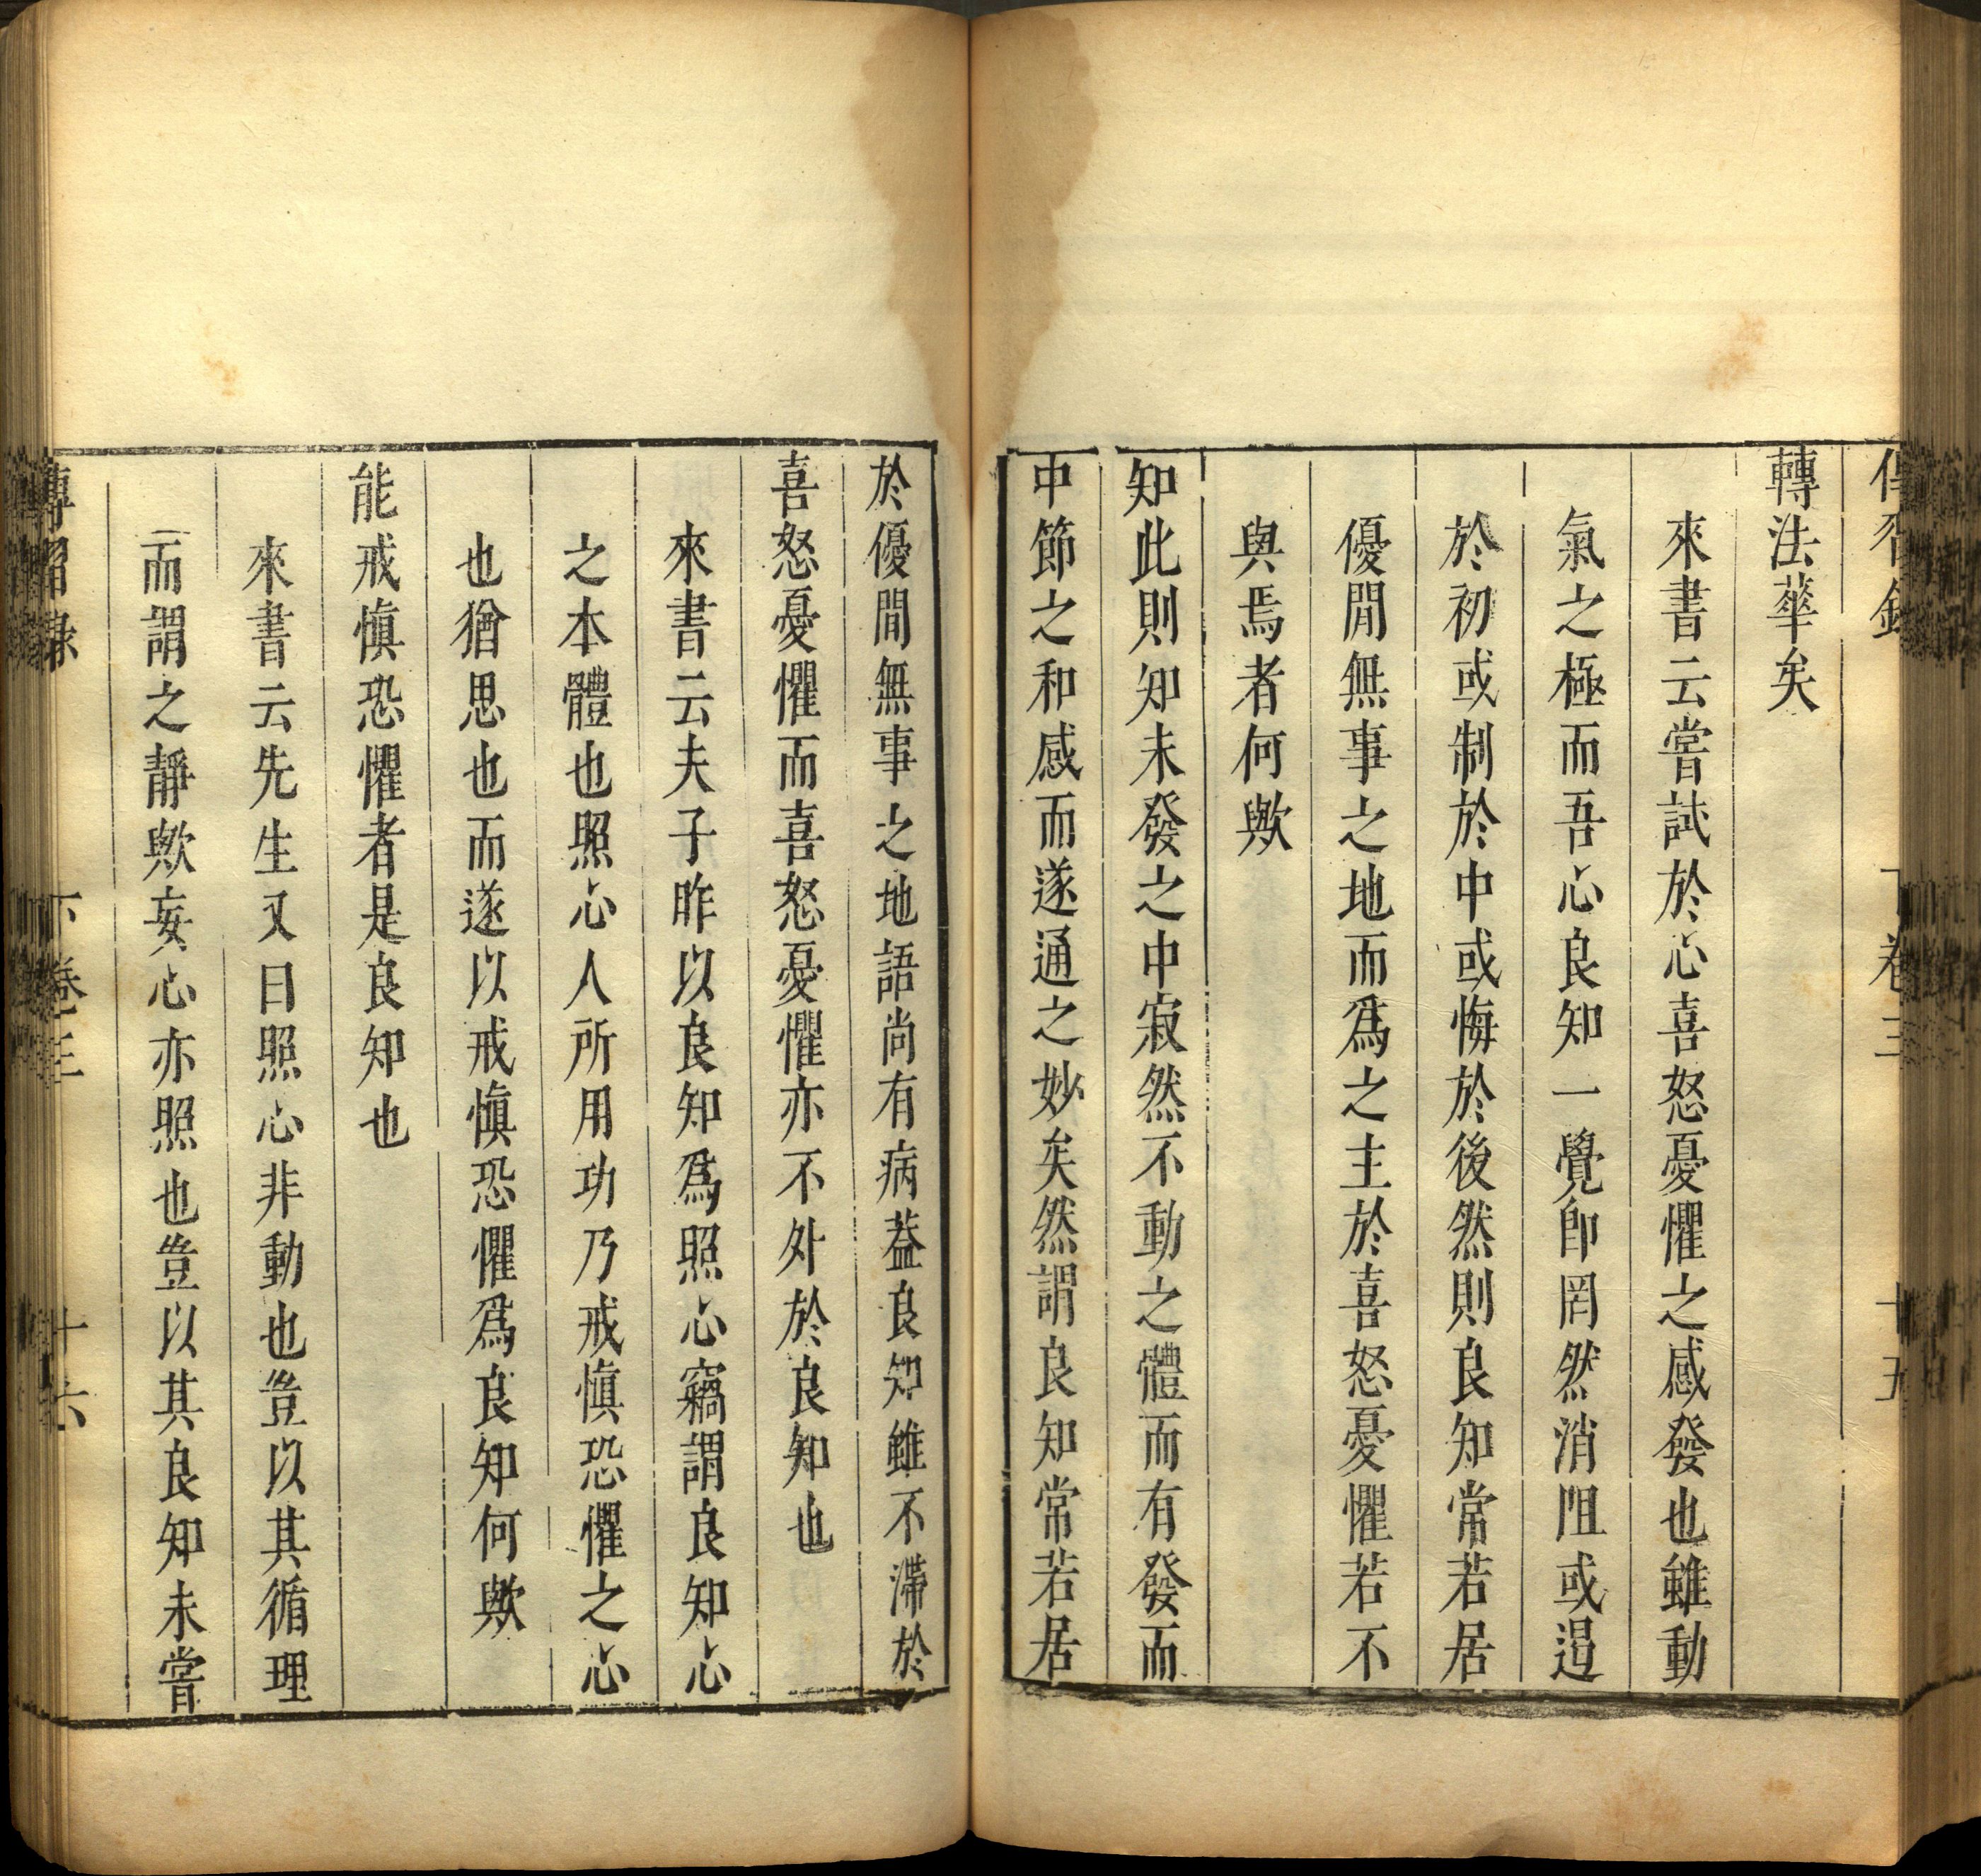 傳習錄 下卷三 十五
轉法華矣
來書云嘗試於心喜怒憂懼之感發也雖動
氣之極而吾心良知一覺卽罔然消阻或遏
於初或制於中或悔於後然則良知常若居
優閒無事之地而爲之主於喜怒憂懼若不
與焉者何歟
知此則知未發之中寂然不動之體而有發而
中節之和感而遂通之妙矣然謂良知常若居
於優閒無事之地語尚有病葢良知雖不滯於
喜怒憂懼而喜怒憂懼亦不外於良知也
來書云夫子昨以良知爲照心竊謂良知心
之本體也照心人所用功乃戒慎恐懼之心
也猶思也而遂以戒慎恐懼爲良知何歟
能戒慎恐懼者是良知也
來書云先生又曰照心非動也豈以其循理
而謂之靜歟妄心亦照也豈以其良知未嘗
傳習錄 下卷三 十六